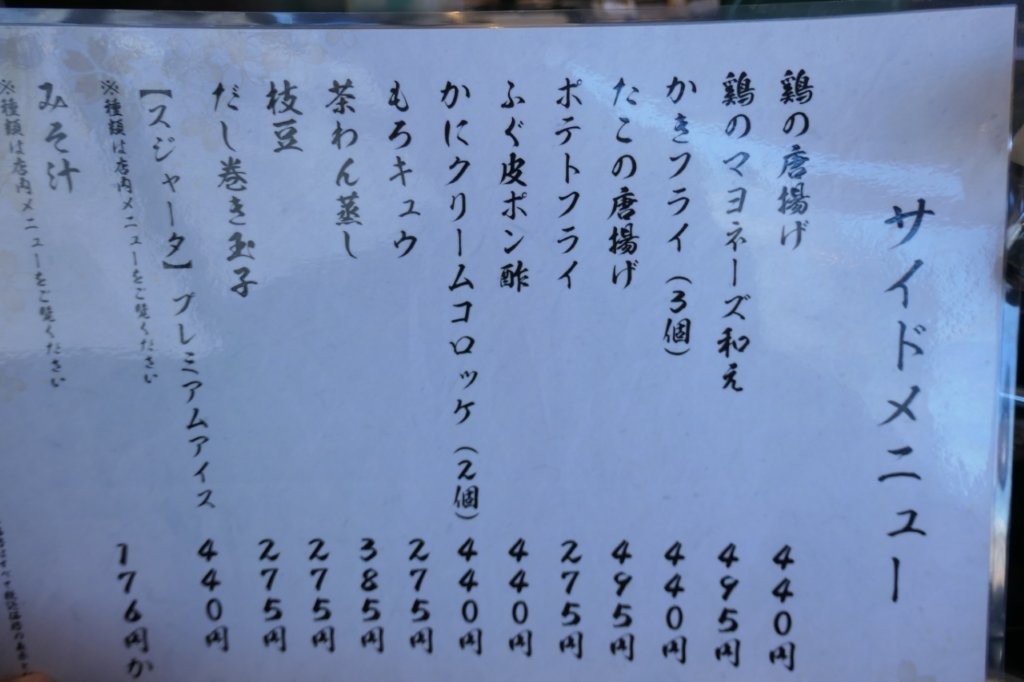 サイドメニュー
鶏の唐揚げ 440円
鶏のマヨネーズ和え 495円
かきフライ(3個) 440円
たこの唐揚げ 495円
ポテトフライ 275円
ふぐ皮ポン酢 440円
かにクリームコロッケ(2個) 440円
もろキュウ 275円
茶わん蒸し 385円
枝豆 275円
だし巻き玉子 275円
【スジャータ】プレミアムアイス 440円
※種類は店内メニューをご覧ください
みそ汁 176円か
※種類は店内メニューをご覧ください